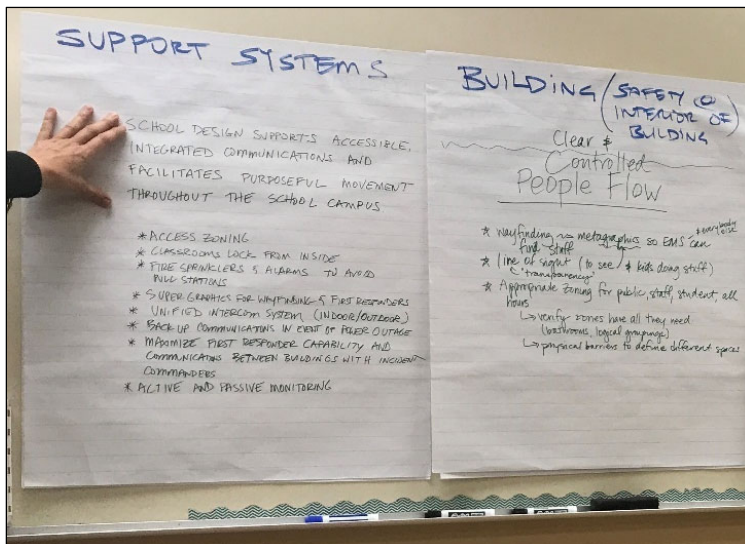 SUPPORT SYSTEMS
SCHOOL DESIGN SUPPORTS ACCESSIBLE,
INTEGRATED COMMUNICATIONS AND
FACILITATES PURPOSEFUL MOVEMENT
THROUGHOUT THE SCHOOL CAMPUS
* ACCESS ZONING
* CLASSROOMS LOCK FROM INSIDE
* FIRE SPRINKLERS & ALARMS TO AVOID
PULL STATIONS
* SUPER GRAPHICS FOR WAYFINDING & FIRST RESPONDERS
* UNIFIED INTERCOM SYSTEM (INDOOR/OUTDOOR)
* BACK UP COMMUNICATIONS IN EVENT OF POWER OUTAGE
* MAXIMIZE FIRST RESPONDER CAPABILITY AND
COMMUNICATIONS BETWEEN BUILDINGS WITH INCIDENT
COMMANDERS
* ACTIVE AND PASSIVE MONITORING
BUILDING / SAFETY @
INTERIOR OF
BUILDING
Clear &
Controlled
People Flow
* wayfinding metagraphics so EMS can
& everybody else
find staff
* line of sight (to see & kids doing stuff)
"transparency"
* Appropriate zoning for public, staff, student, all
hours
↳ verify zones have all they need
(bathrooms, logical groupings)
↳ physical barriers to define different spaces